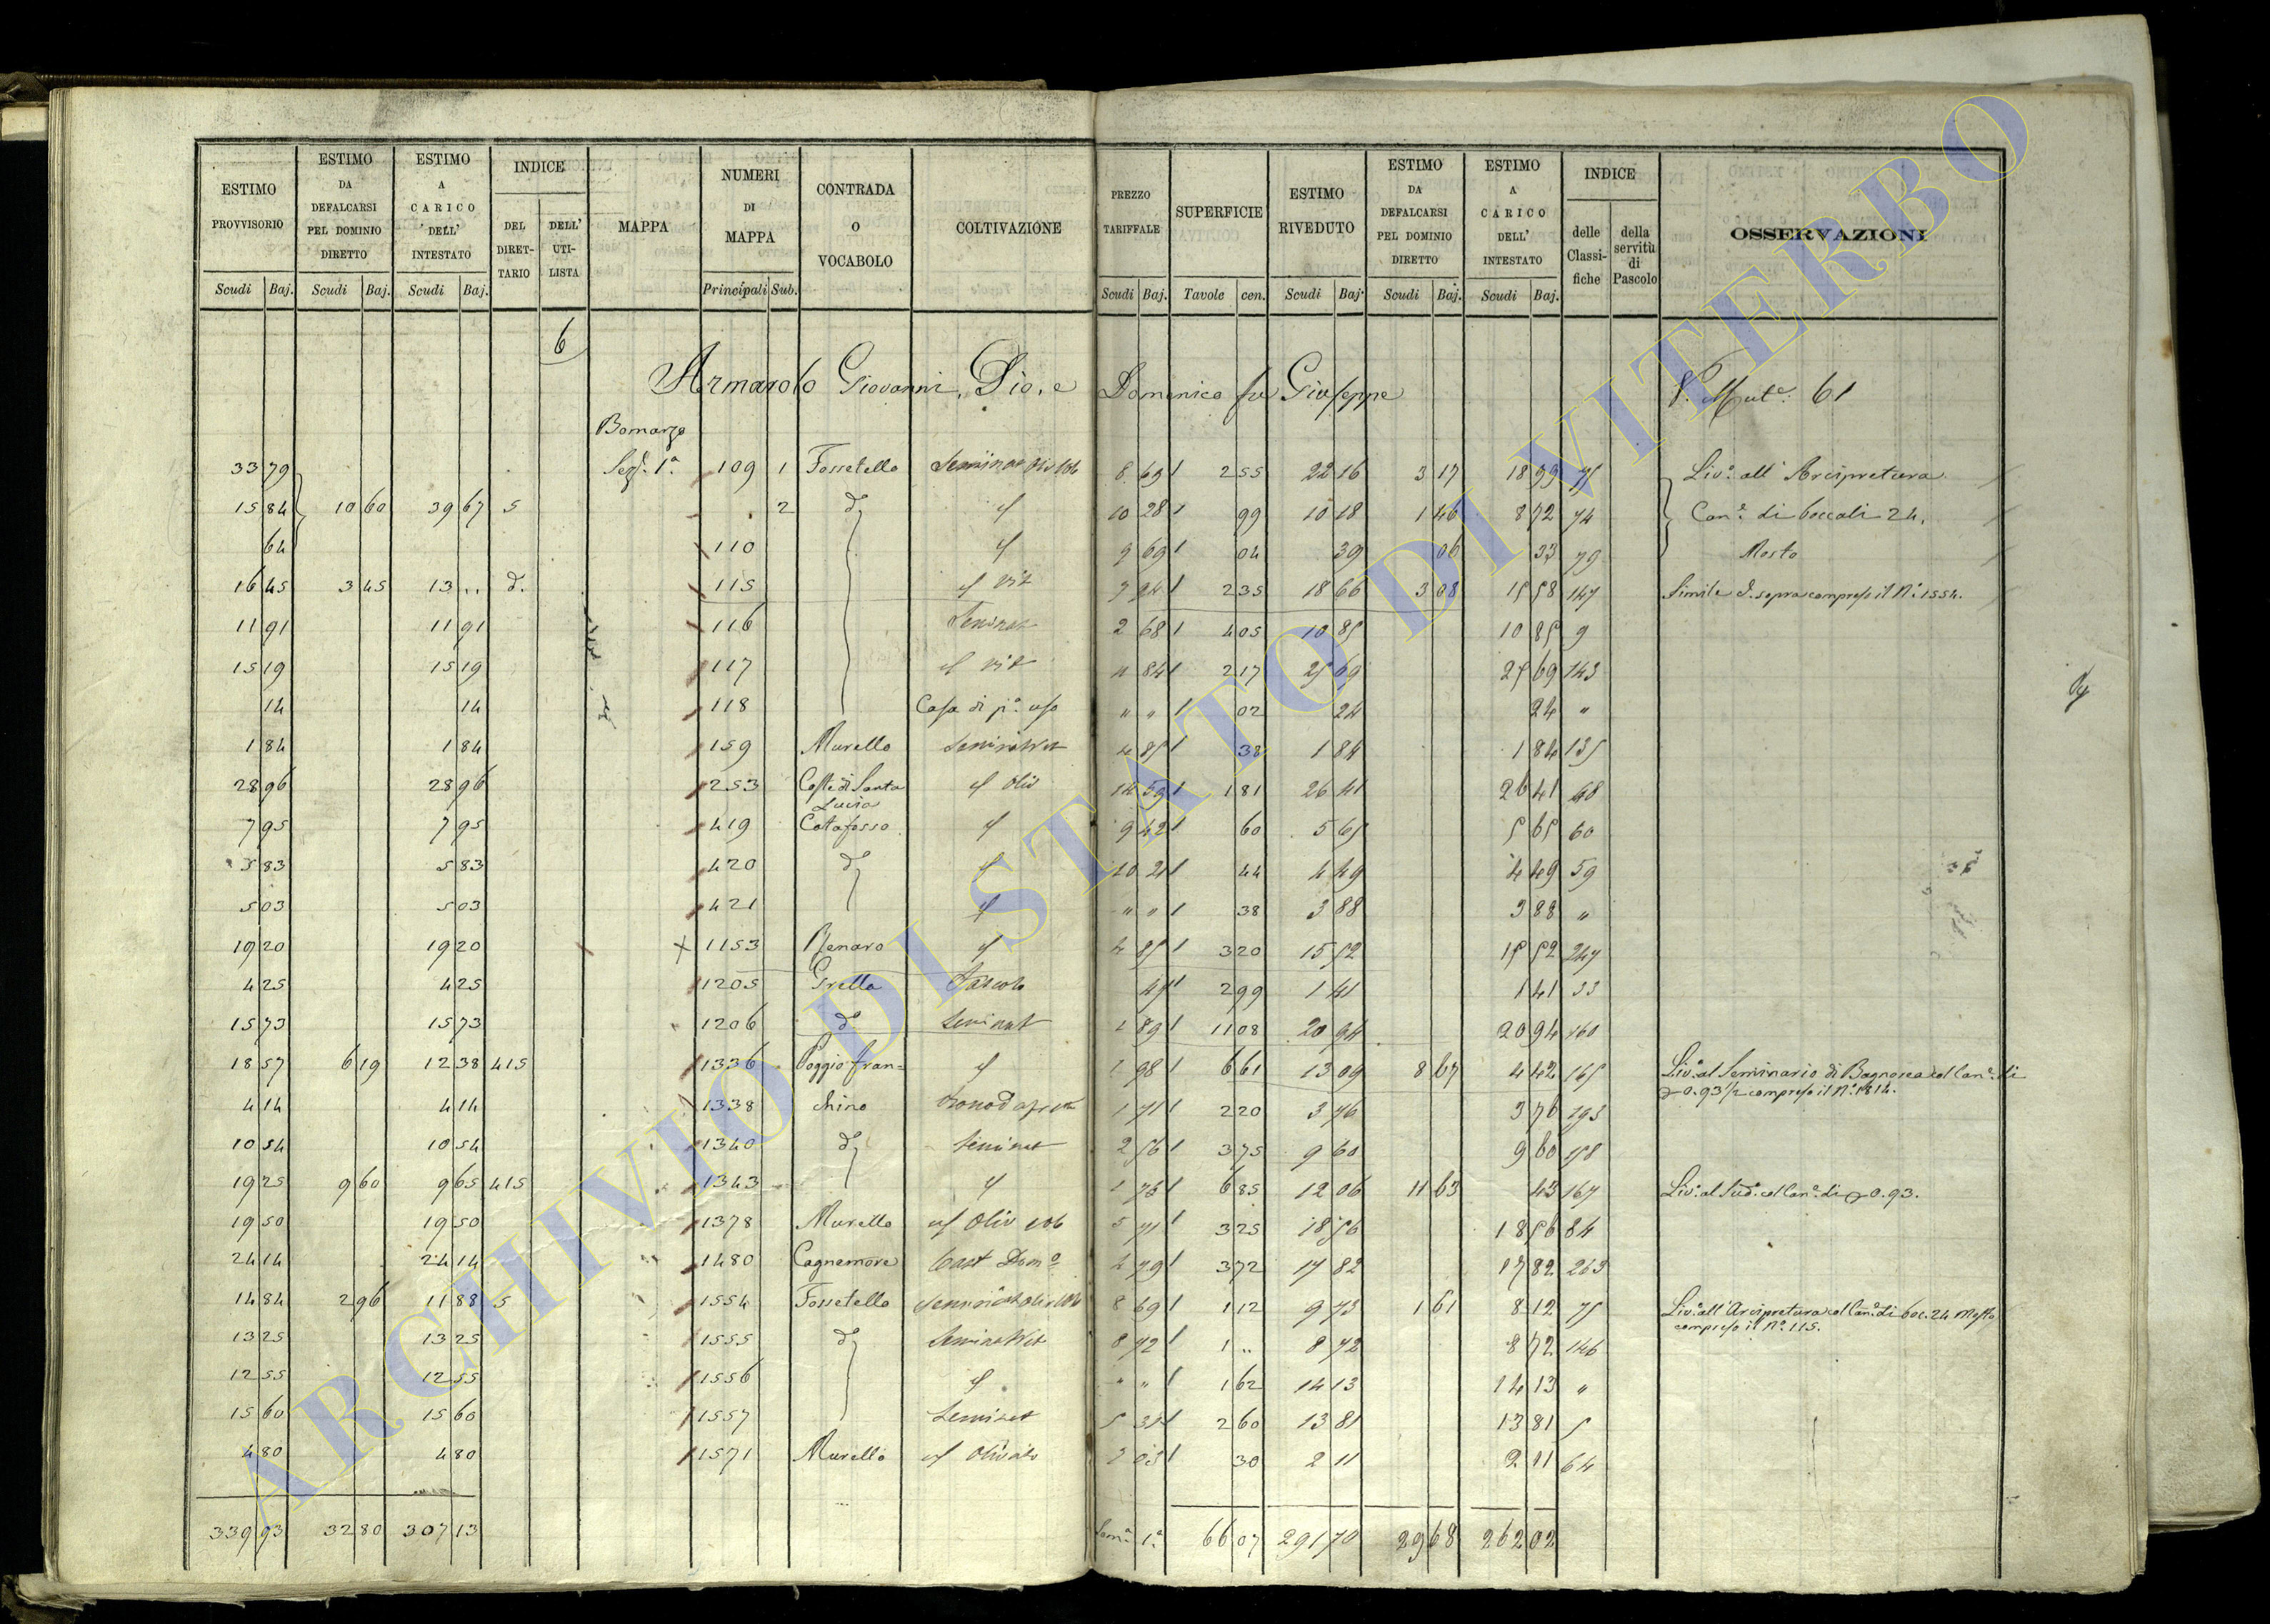 ESTIMO PROVVISORIO Scudi Baj. | ESTIMO DA DEFALCARSI PEL DOMINIO DIRETTO Scudi Baj. | ESTIMO A CARICO DELL' INTESTATO Scudi Baj. | INDICE DEL DIRET-TARIO | DELL' UTI-LISTA | MAPPA | NUMERI DI MAPPA Principali Sub. | CONTRADA O VOCABOLO | COLTIVAZIONE | PREZZO TARIFFALE Scudi Baj. | SUPERFICIE Tavole cen. | ESTIMO RIVEDUTO Scudi Baj. | ESTIMO DA DEFALCARSI PEL DOMINIO DIRETTO Scudi Baj. | ESTIMO A CARICO DELL' INTESTATO Scudi Baj. | INDICE delle Classi-fiche | della servitù di Pascolo | OSSERVAZIONI
6
Armarolo Giovanni, Pio, e Domenico fu Giuseppe 61
Bomarzo
33 79 Sez.e 1a 109 1 Fossatello 8 69 2 55 22 16 3 17 18 99 75 Liv.o all' Arcipretura
15 84 10 60 39 67 5 2 10 28 99 10 18 1 46 8 72 74 Can.e di boccali 24.
64 110 9 69 04 39 06 33 79 Mosto
16 45 3 45 13 .. d. 115 vit 7 94 2 35 18 66 3 08 15 58 147 Simile d. sopra compreso il N.o 1554.
11 91 11 91 116 Seminat 2 68 4 05 10 85 10 85 9
15 19 15 19 117 vit 11 84 2 17 25 69 25 69 143
14 14 118 Casa di p.o uso " " 02 24 24 "
1 84 1 84 159 Murello Seminat vit 4 85 38 1 84 1 84 135
28 96 28 96 253 Coste di Santa Lucia oliv 14 59 1 81 26 41 26 41 48
7 95 7 95 419 Catafosso 9 42 60 5 65 5 65 60
5 83 5 83 420 10 21 44 4 49 4 49 59
5 03 5 03 421 " " 38 3 88 3 88 "
19 20 19 20 1153 Renaro 4 85 3 20 15 52 15 52 247
4 25 4 25 1205 Grella Pascolo 47 2 99 1 41 1 41 33
15 73 15 73 1206 Seminat 1 89 11 08 20 94 20 94 160
18 57 6 19 12 38 415 1336 Poggio fran= 1 98 6 61 13 09 8 67 4 42 165 Liv.o al Seminario di Bagnorea col Can.e di
0.93 1/2 compreso il N.o 1814.
4 14 4 14 1338 chino 1 71 2 20 3 76 3 76 193
10 54 10 54 1340 Seminat 2 56 3 75 9 60 9 60 158
19 25 9 60 9 65 415 1343 1 76 6 85 12 06 11 63 43 167 Liv.o al Sud.o col Can.e di 0.93.
19 50 19 50 1378 Murello oliv 5 71 3 25 18 56 18 56 84
24 14 24 14 1480 Cagnemore Cast Dom.o 4 79 3 72 17 82 17 82 263
14 84 2 96 11 88 5 1554 Fossatello 8 69 1 12 9 73 1 61 8 12 75 Liv.o all'Arcipretura col Can.e di boc. 24 Mosto
compreso il N.o 115.
13 25 13 25 1555 Seminat Vit 8 72 1 .. 8 72 8 72 146
12 55 12 55 1556 " " 1 62 14 13 14 13 "
15 60 15 60 1557 Seminat 5 31 2 60 13 81 13 81 5
4 80 4 80 1571 Murello Olivato 7 03 30 2 11 2 11 64
339 93 32 80 307 13 Som.a 1.a 66 07 291 70 29 68 262 02
ARCHIVIO DI STATO DI VITERBO